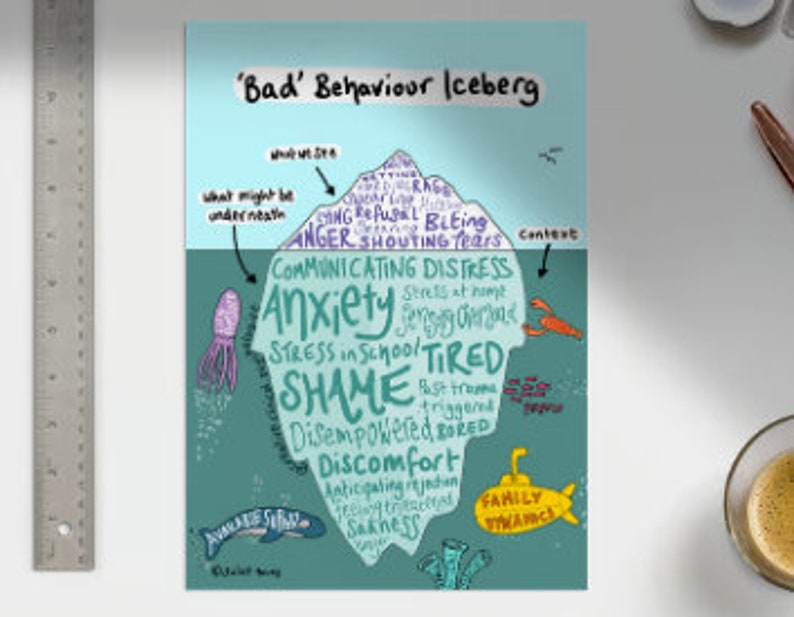 'Bad' Behaviour Iceberg
What we see
What might be
underneath
Context
HITTING
RAGE
Swearing
Refusal Biting
ANGER SHOUTING Tears
COMMUNICATING DISTRESS
Anxiety
Stress at home
Sensory Overload
STRESS in School TIRED
SHAME
Past trauma
triggered
Disempowered, BORED
Discomfort
Anticipating rejection
Feeling threatened
SADNESS
FAMILY
DYNAMICS
AVAILABLE SUPPORT